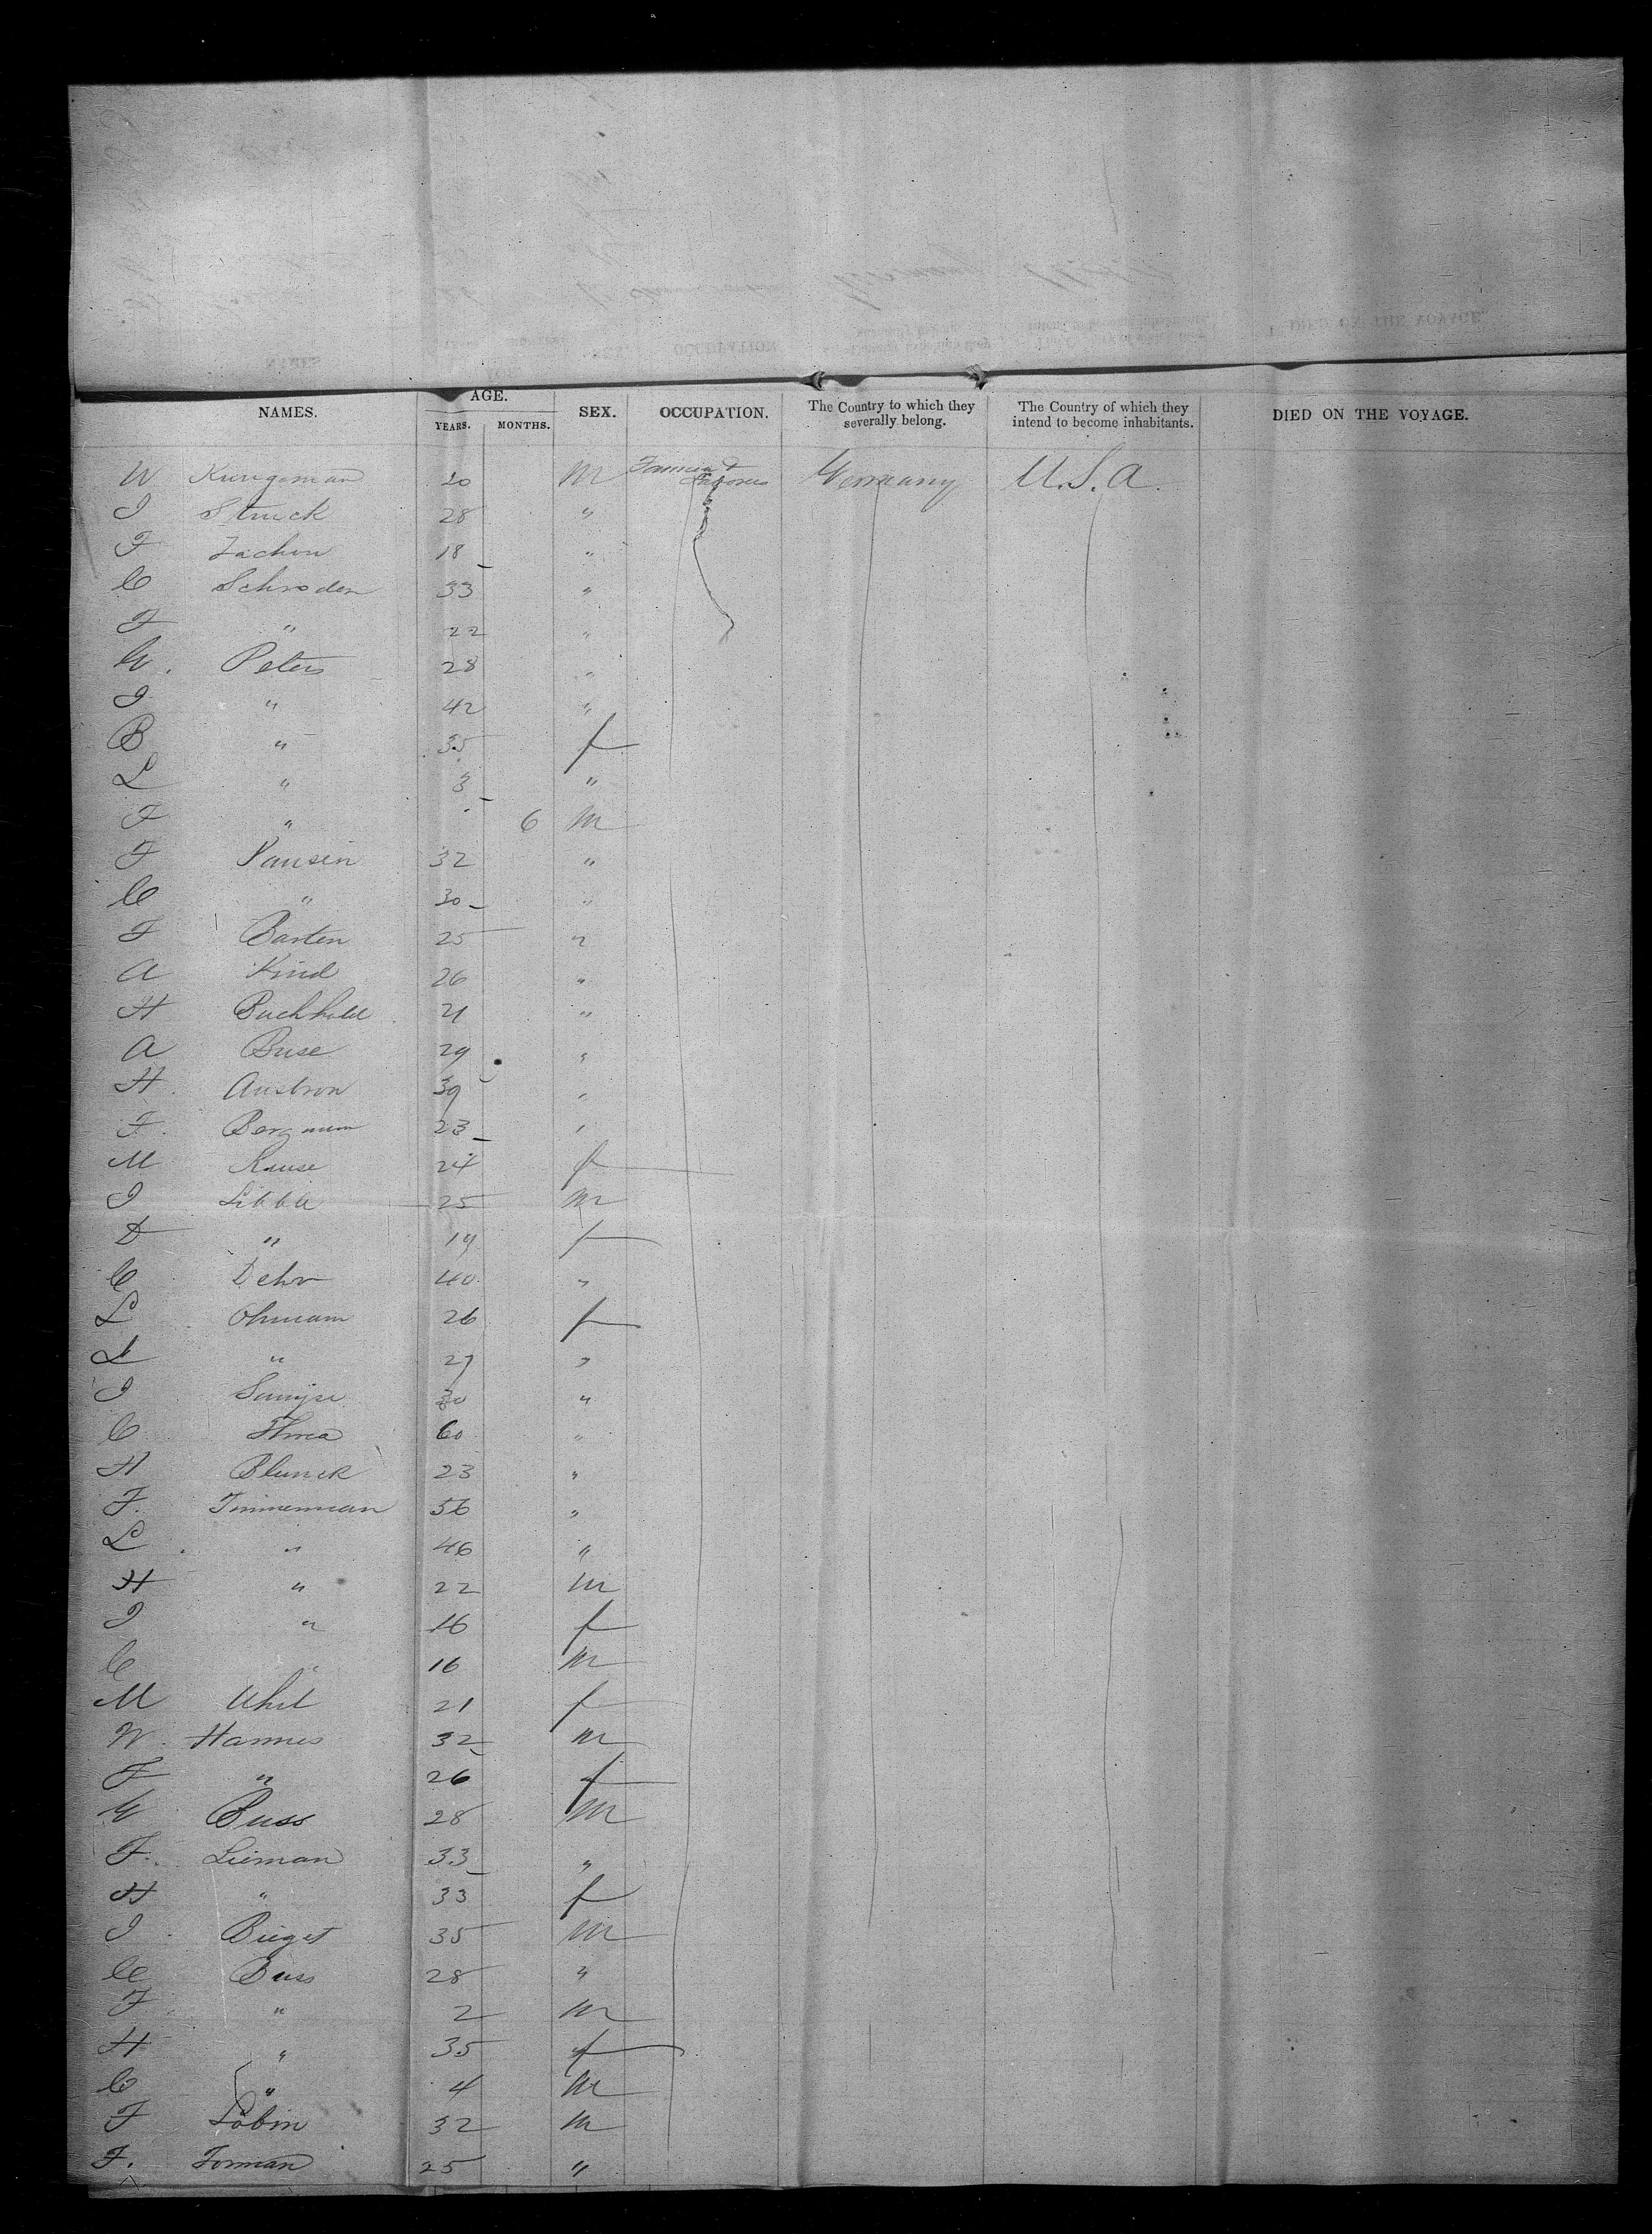 AGE.
NAMES. YEARS. MONTHS. SEX. OCCUPATION. The Country to which they severally belong. The Country of which they intend to become inhabitants. DIED ON THE VOYAGE.
W Kungsman 20 M Farmers & Laborers Germany U.S.A.
I Struck 28 "
F Zachow 18 "
C Schroder 33 "
F " 22 "
W. Peters 28 "
I " 42 "
B " 35 f
L " 3 "
F " 6 M
F Pansin 32 "
C " 30 "
F Barten 25 "
A Kind 26 "
H Buchhold 21 "
A Buse 29 "
H. Austron 39 "
F. Bergmim 23 "
M Kruse 24 f
I Libble 25 M
D " 19 f
C Dehr 40 "
L Ohmann 26 f
L " 27 "
I 30 "
C Threa 60 "
H Blunck 23 "
F. Timmerman 56 "
L " 46 "
H " 22 M
I " 16 f
C " 16 M
M Uhil 21 f
W. Hannes 32 M
F " 26 f
W Buss 28 M
F. Lieman 33 "
H " 33 f
I Bieget 35 M
C Buss 28 "
F " 2 M
H " 35 f
C " 4 M
F Lobin 32 M
F. Forman 25 "